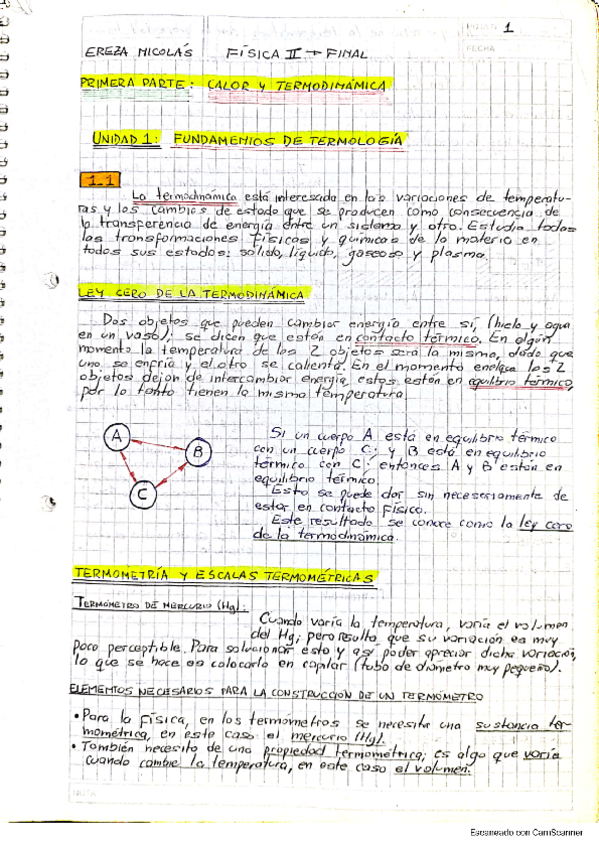 HOJA N° 1
FECHA
EREZA NICOLÁS FÍSICA II → FINAL
PRIMERA PARTE: CALOR Y TERMODINÁMICA
UNIDAD 1: FUNDAMENTOS DE TERMOLOGÍA
1.1
La termodinámica está interesada en las variaciones de temperatu-
ras y los cambios de estado que se producen como consecuencia de
la transferencia de energía entre un sistema y otro. Estudia todas
las transformaciones físicas y químicas de la materia en
todos sus estados: solido, líquido, gaseoso y plasma.
LEY CERO DE LA TERMODINÁMICA
Dos objetos que pueden cambiar energía entre sí, (hielo y agua
en un vaso), se dicen que están en contacto térmico. En algún
momento la temperatura de los 2 objetos será la misma, dado que
uno se enfría y el otro se calienta. En el momento en el que los 2
objetos dejan de intercambiar energía, estos están en equilibrio térmico,
por lo tanto tienen la misma temperatura.
A
B
C
Si un cuerpo A está en equilibrio térmico
con un cuerpo C; y B está en equilibrio
térmico con C; entonces A y B están en
equilibrio térmico.
Esto se puede dar sin necesariamente de
estar en contacto físico.
Este resultado se conoce como la ley cero
de la termodinámica.
TERMOMETRÍA Y ESCALAS TERMOMÉTRICAS
TERMOMETRO DE MERCURIO (Hg):
Cuando varía la temperatura, varía el volumen
del Hg; pero resulta que su variación es muy
poco perceptible. Para solucionar esto y así poder apreciar dicha variación,
lo que se hace es colocarlo en capilar (tubo de diámetro muy pequeño).
ELEMENTOS NECESARIOS PARA LA CONSTRUCCIÓN DE UN TERMÓMETRO
• Para la física, en los termometros se necesita una sustancia ter-
mométrica, en este caso el mercurio (Hg).
• También necesito de una propiedad termométrica; es algo que varía
cuando cambie la temperatura, en este caso el volumen.
NOTA
Escaneado con CamScanner